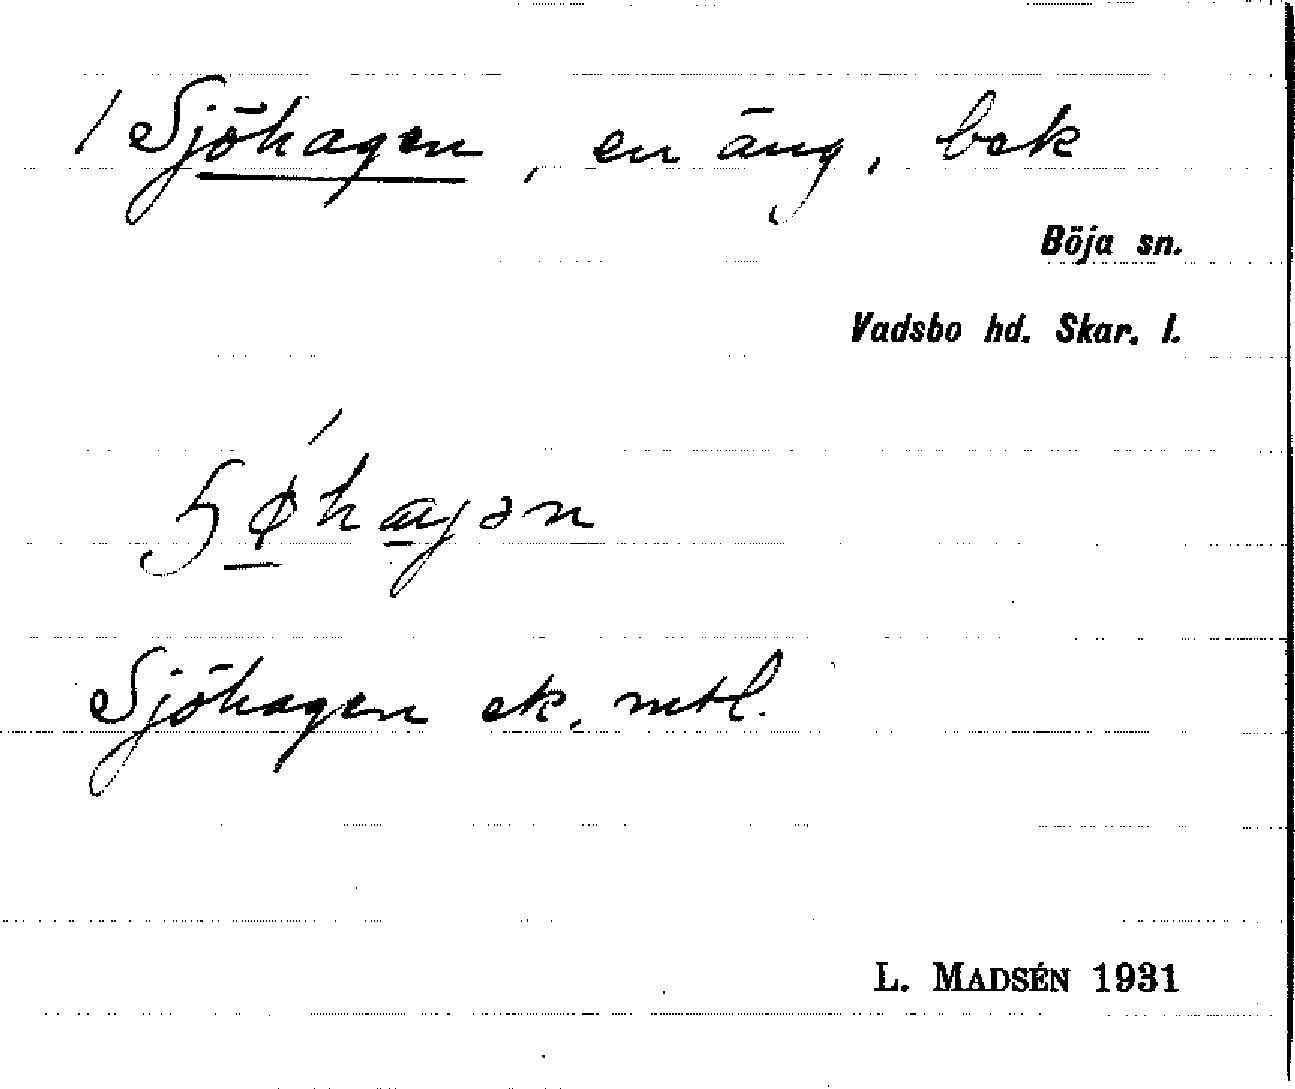 / Sjöhagen, en äng, bek
Böja sn.
Vadsbo hd. Skar. l.
Sjöhagen ek. mtl.
L. MADSÉN 1931